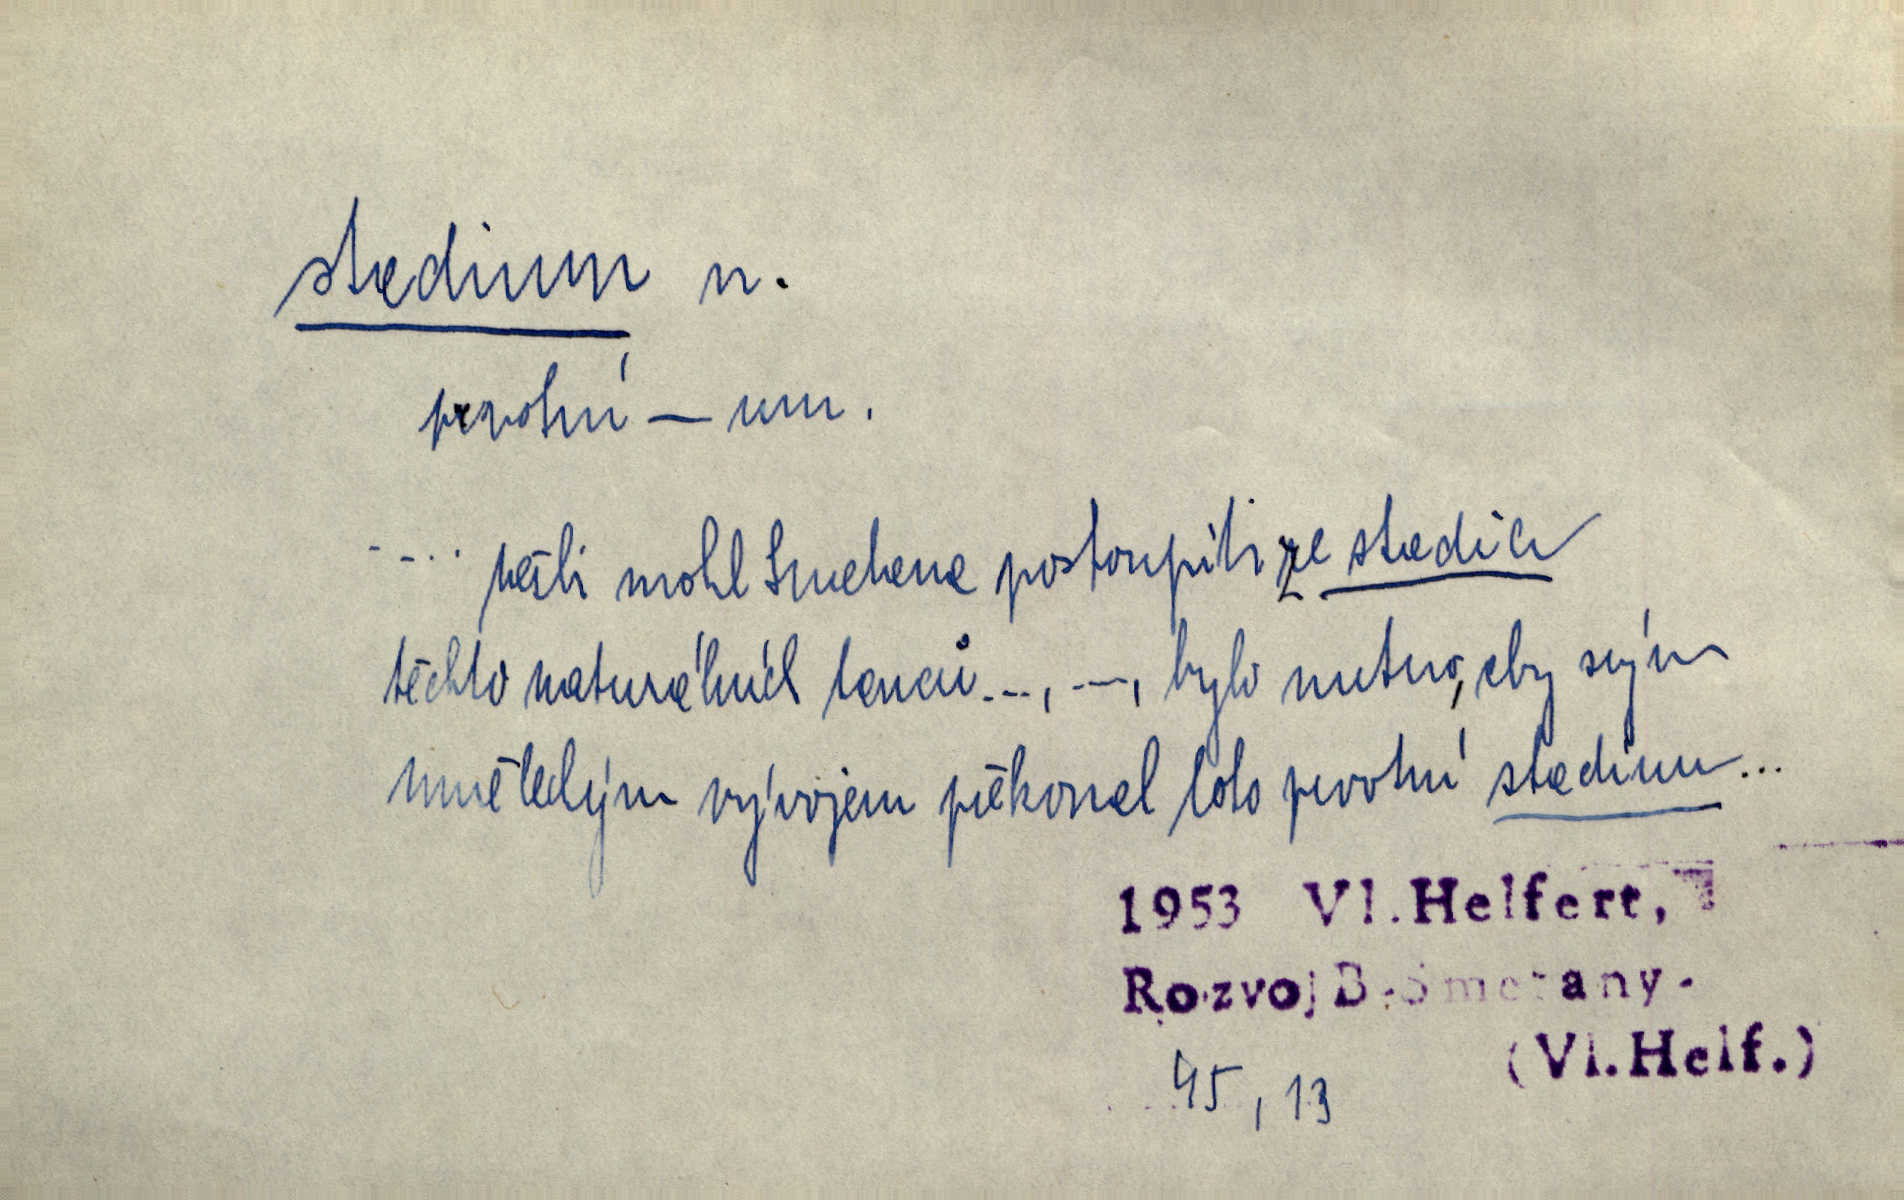 stadium n.
prvotní – um.
.... nežli mohl Smetana postoupiti ze stadia
těchto naturálních tanců ..., ..., bylo nutno, aby svým
uměleckým vývojem překonal toto prvotní stadium ...
1953 Vl. Helfert,
Rozvoj B. Smetany.
(Vl. Helf.)
45, 13